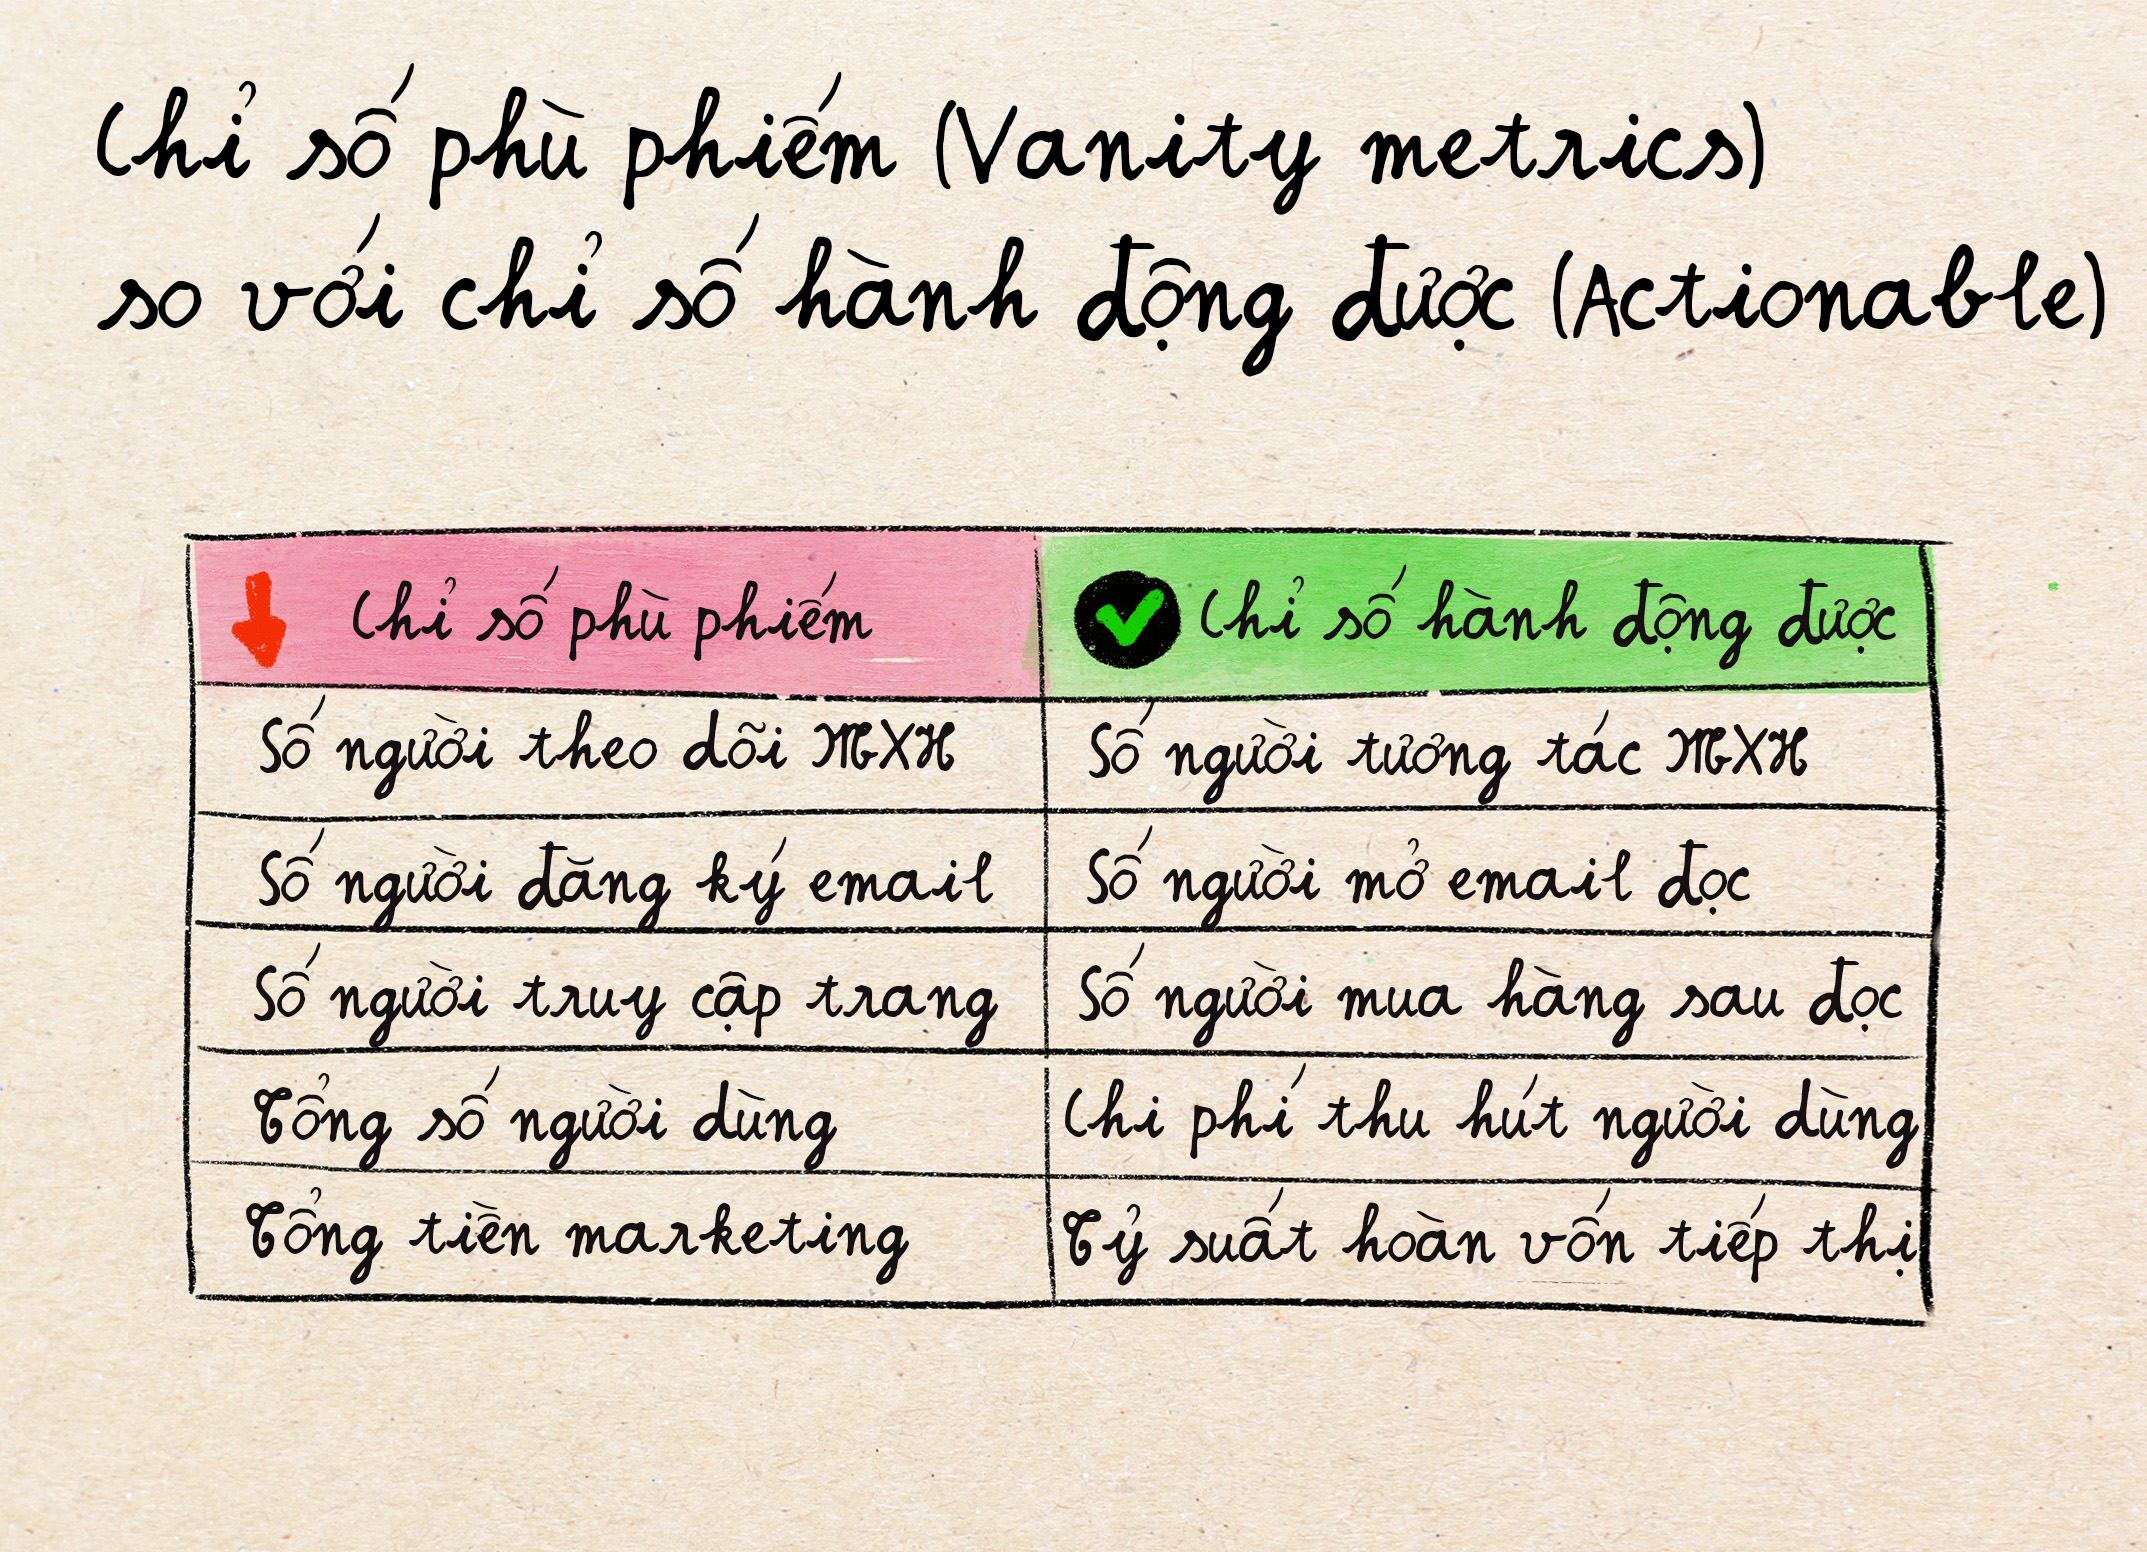 Chỉ số phù phiếm (Vanity metrics)
so với chỉ số hành động được (Actionable)
Chỉ số phù phiếm
Chỉ số hành động được
Số người theo dõi MXH
Số người tương tác MXH
Số người đăng ký email
Số người mở email đọc
Số người truy cập trang
Số người mua hàng sau đọc
Tổng số người dùng
Chi phí thu hút người dùng
Tổng tiền marketing
Tỷ suất hoàn vốn tiếp thị